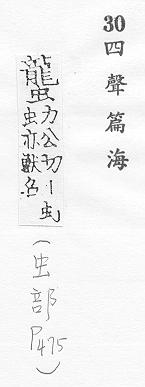 30 四聲篇海
蠪 力公切丨虫
虫亦獸名
(虫部
P475)